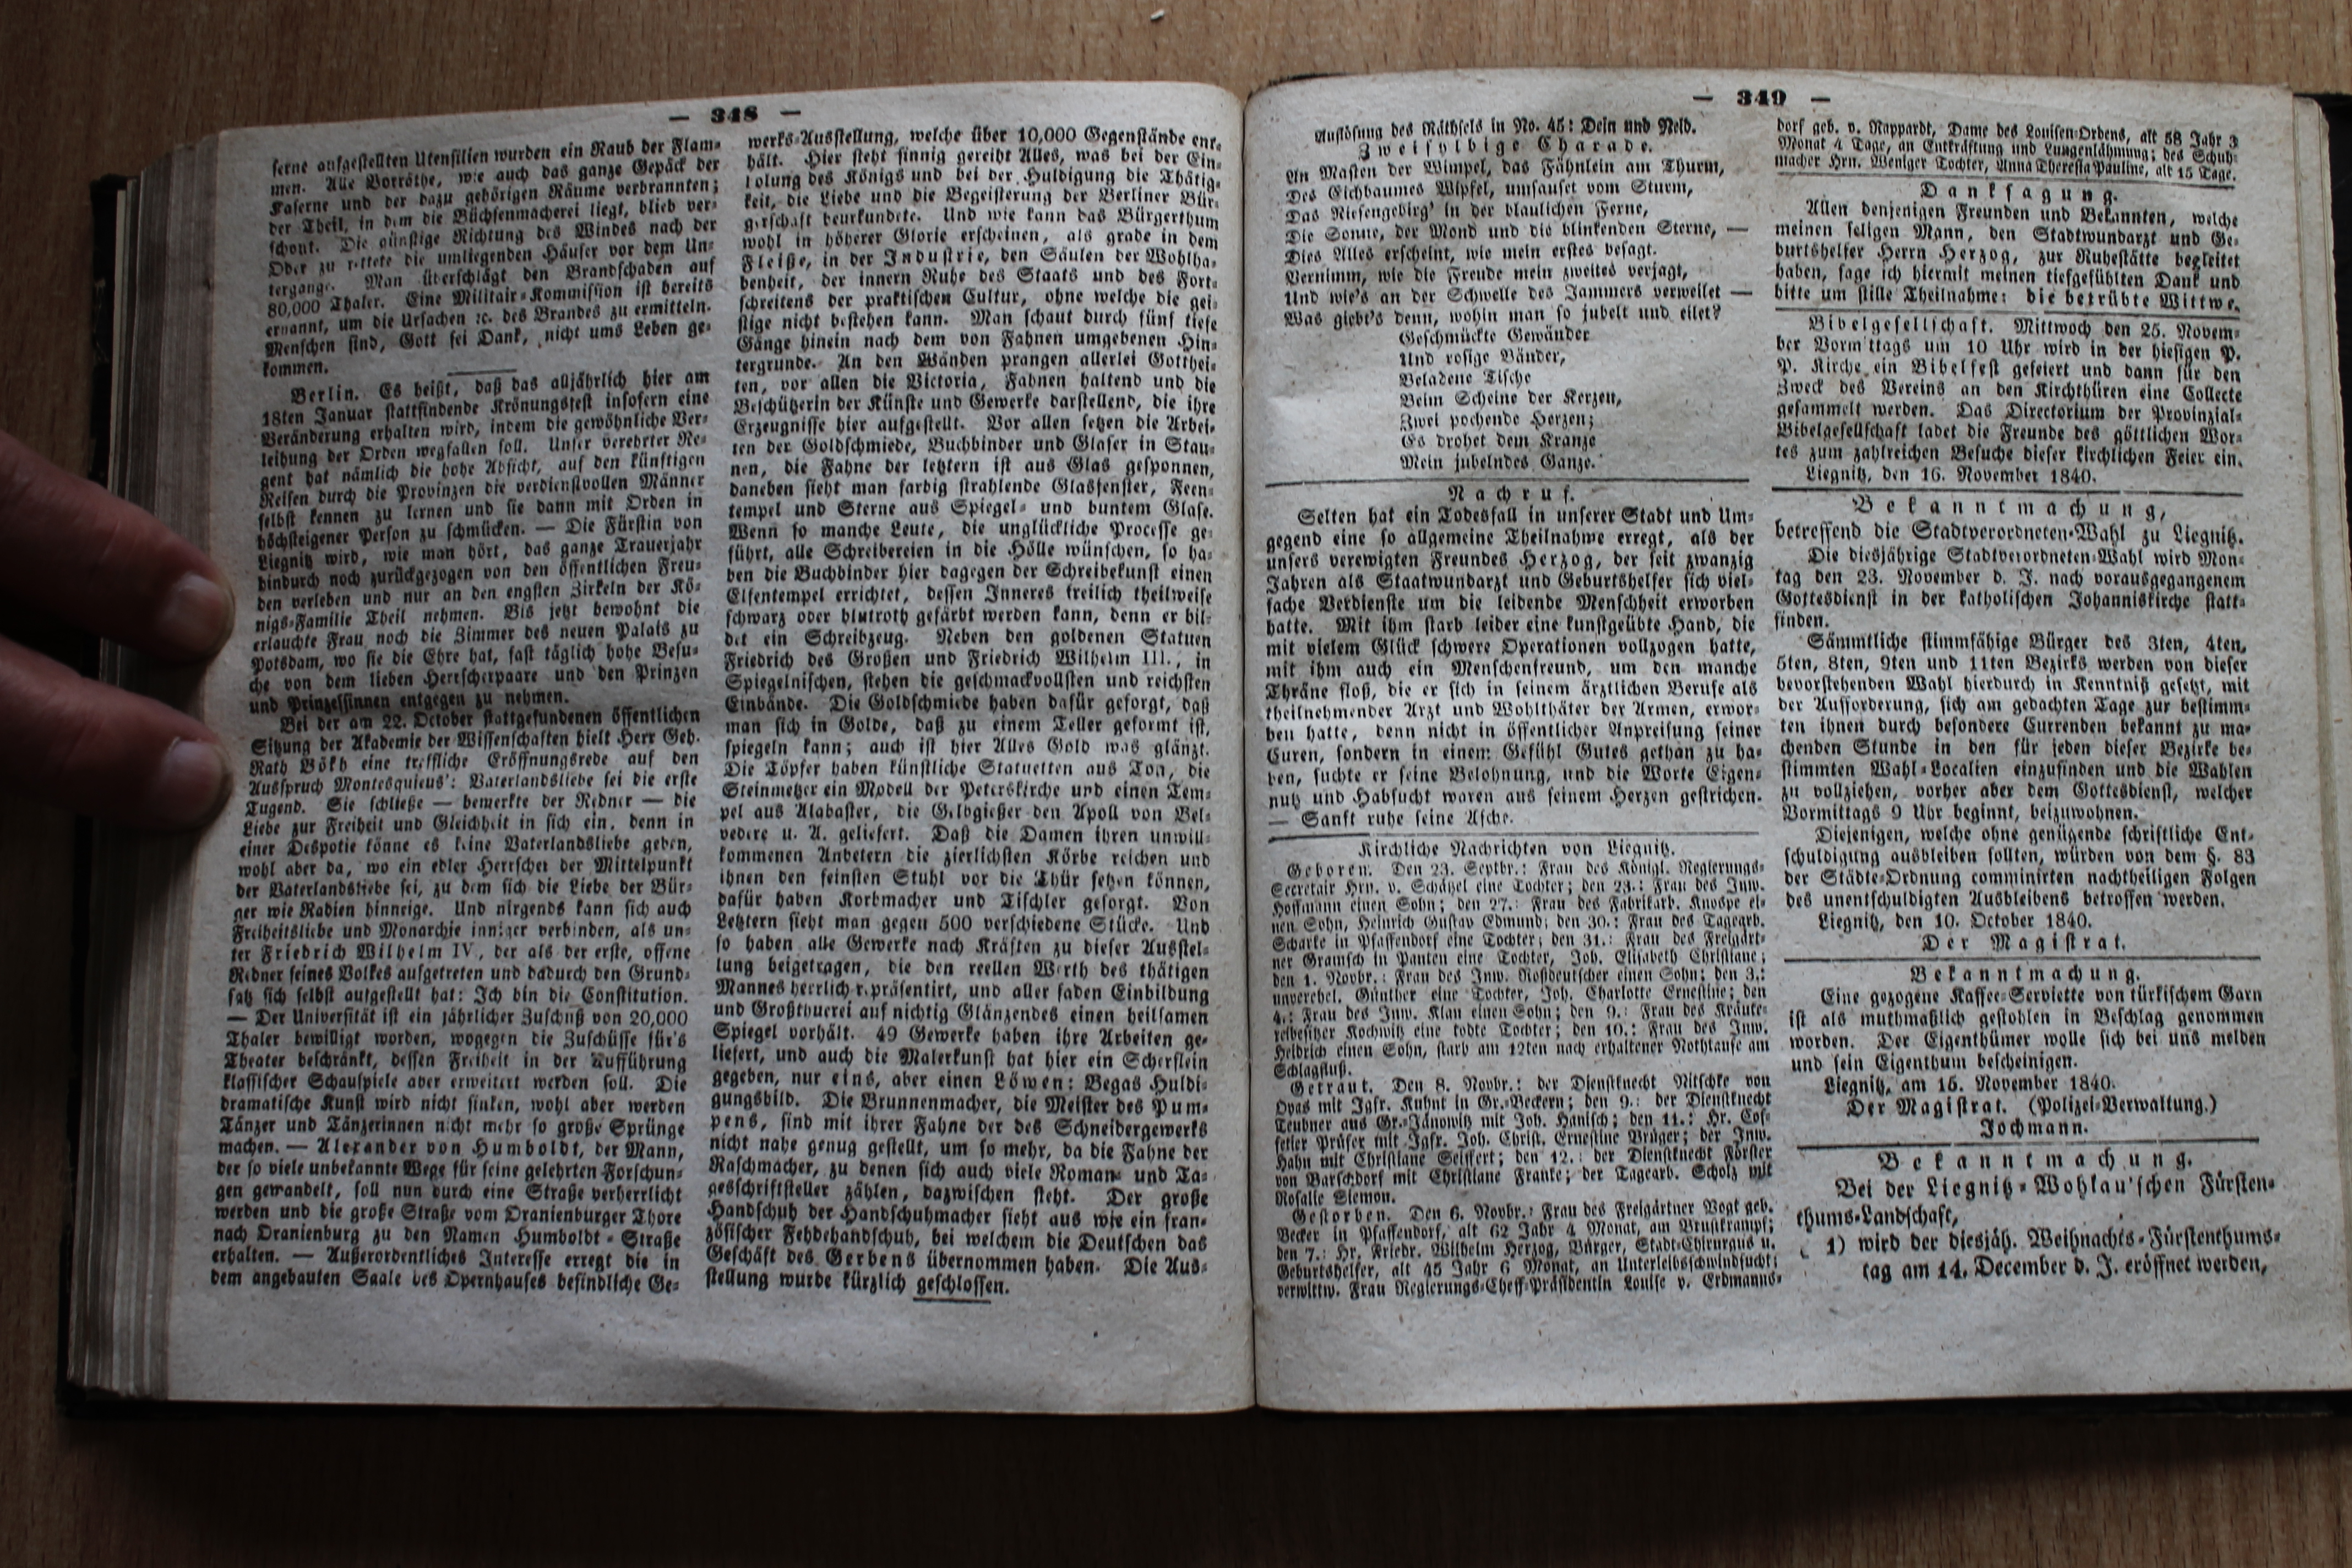 — 348 —
ferne aufgestellten Utensilien wurden ein Raub der Flam-
men. Alle Vorräthe, wie auch das ganze Gepäck der
Kaserne und der dazu gehörigen Räume verbrannten;
der Theil, in dem die Büchsenmacherei liegt, blieb ver-
schont. Die günstige Richtung des Windes nach der
Oder zu rettete die umliegenden Häuser vor dem Un-
tergange. Man überschlägt den Brandschaden auf
80,000 Thaler. Eine Militair-Kommission ist bereits
ernannt, um die Ursachen ꝛc. des Brandes zu ermitteln.
Menschen sind, Gott sei Dank, nicht ums Leben ge-
kommen.
Berlin. Es heißt, daß das alljährlich hier am
18ten Januar stattfindende Krönungsfest insofern eine
Veränderung erhalten wird, indem die gewöhnliche Ver-
leihung der Orden wegfallen soll. Unser verehrter Re-
gent hat nämlich die hohe Absicht, auf den künftigen
Reisen durch die Provinzen die verdienstvollen Männer
selbst kennen zu lernen und sie dann mit Orden in
höchsteigener Person zu schmücken. — Die Fürstin von
Liegnitz wird, wie man hört, das ganze Trauerjahr
hindurch noch zurückgezogen von den öffentlichen Freu-
den verleben und nur an den engsten Zirkeln der Kö-
nigs-Familie Theil nehmen. Bis jetzt bewohnt die
erlauchte Frau noch die Zimmer des neuen Palais zu
Potsdam, wo sie die Ehre hat, fast täglich hohe Besu-
che von dem lieben Herrscherpaare und den Prinzen
und Prinzessinnen entgegen zu nehmen.
Bei der am 22. October stattgefundenen öffentlichen
Sitzung der Akademie der Wissenschaften hielt Herr Geh.
Rath Bökh eine treffliche Eröffnungsrede auf den
Ausspruch Montesquieus': Vaterlandsliebe sei die erste
Tugend. Sie schließe — bemerkte der Redner — die
Liebe zur Freiheit und Gleichheit in sich ein, denn in
einer Despotie könne es keine Vaterlandsliebe geben,
wohl aber da, wo ein edler Herrscher der Mittelpunkt
der Vaterlandsliebe sei, zu dem sich die Liebe der Bür-
ger wie Radien hinneige. Und nirgends kann sich auch
Freiheitsliebe und Monarchie inniger verbinden, als un-
ter Friedrich Wilhelm IV, der als der erste, offene
Redner seines Volkes aufgetreten und dadurch den Grund-
satz sich selbst aufgestellt hat: Ich bin die Constitution.
— Der Universität ist ein jährlicher Zuschuß von 20,000
Thaler bewilligt worden, wogegen die Zuschüsse für's
Theater beschränkt, dessen Freiheit in der Aufführung
klassischer Schauspiele aber erweitert werden soll. Die
dramatische Kunst wird nicht sinken, wohl aber werden
Tänzer und Tänzerinnen nicht mehr so große Sprünge
machen. — Alexander von Humboldt, der Mann,
der so viele unbekannte Wege für seine gelehrten Forschun-
gen gewandelt, soll nun durch eine Straße verherrlicht
werden und die große Straße vom Oranienburger Thore
nach Oranienburg zu den Namen Humboldt-Straße
erhalten. — Außerordentliches Interesse erregt die in
dem angebauten Saale des Opernhauses befindliche Ge-
werks-Ausstellung, welche über 10,000 Gegenstände ent-
hält. Hier steht sinnig gereiht Alles, was bei der Ein-
holung des Königs und bei der Huldigung die Thätig-
keit, die Liebe und die Begeisterung der Berliner Bür-
gerschaft beurkundete. Und wie kann das Bürgerthum
wohl in höherer Glorie erscheinen, als grade in dem
Fleiße, in der Industrie, den Säulen der Wohlha-
benheit, der innern Ruhe des Staats und des Fort-
schreitens der praktischen Cultur, ohne welche die gei-
stige nicht bestehen kann. Man schaut durch fünf tiefe
Gänge hinein nach dem von Fahnen umgebenen Hin-
tergrunde. An den Wänden prangen allerlei Gotthei-
ten, vor allen die Victoria, Fahnen haltend und die
Beschützerin der Künste und Gewerke darstellend, die ihre
Erzeugnisse hier aufgestellt. Vor allen setzen die Arbei-
ten der Goldschmiede, Buchbinder und Glaser in Stau-
nen, die Fahne der letztern ist aus Glas gesponnen,
daneben sieht man farbig strahlende Glasfenster, Feen-
tempel und Sterne aus Spiegel- und buntem Glase.
Wenn so manche Leute, die unglückliche Processe ge-
führt, alle Schreibereien in die Hölle wünschen, so ha-
ben die Buchbinder hier dagegen der Schreibekunst einen
Elfentempel errichtet, dessen Inneres freilich theilweise
schwarz oder blutroth gefärbt werden kann, denn er bil-
det ein Schreibzeug. Neben den goldenen Statuen
Friedrich des Großen und Friedrich Wilhelm III., in
Spiegelnischen, stehen die geschmackvollsten und reichsten
Einbände. Die Goldschmiede haben dafür gesorgt, daß
man sich in Golde, daß zu einem Teller geformt ist,
spiegeln kann; auch ist hier Alles Gold was glänzt.
Die Töpfer haben künstliche Statuetten aus Ton, die
Steinmetzer ein Modell der Peterskirche und einen Tem-
pel aus Alabaster, die Gelbgießer den Apoll von Bel-
vedere u. A. geliefert. Daß die Damen ihren unwill-
kommenen Anbetern die zierlichsten Körbe reichen und
ihnen den feinsten Stuhl vor die Thür setzen können,
dafür haben Korbmacher und Tischler gesorgt. Von
Letztern sieht man gegen 500 verschiedene Stücke. Und
so haben alle Gewerke nach Kräften zu dieser Ausstel-
lung beigetragen, die den reellen Werth des thätigen
Mannes herrlich repräsentirt, und aller faden Einbildung
und Großthuerei auf nichtig Glänzendes einen heilsamen
Spiegel vorhält. 49 Gewerke haben ihre Arbeiten ge-
liefert, und auch die Malerkunst hat hier ein Scherflein
gegeben, nur eins, aber einen Löwen: Begas Huldi-
gungsbild. Die Brunnenmacher, die Meister des Pum-
pens, sind mit ihrer Fahne der des Schneidergewerks
nicht nahe genug gestellt, um so mehr, da die Fahne der
Raschmacher, zu denen sich auch viele Roman- und Ta-
gesschriftsteller zählen, dazwischen steht. Der große
Handschuh der Handschuhmacher sieht aus wie ein fran-
zösischer Fehdehandschuh, bei welchem die Deutschen das
Geschäft des Gerbens übernommen haben. Die Aus-
stellung wurde kürzlich geschlossen.
— 349 —
Auflösung des Räthsels in No. 45: Dein und Neid.
Zweisylbige Charade.
An Masten der Wimpel, das Fähnlein am Thurm,
Des Eichbaumes Wipfel, umsauset vom Sturm,
Das Riesengebirg' in der blaulichen Ferne,
Die Sonne, der Mond und die blinkenden Sterne, —
Dies Alles erscheint, wie mein erstes besagt.
Vernimm, wie die Freude mein zweites verjagt,
Und wie's an der Schwelle des Jammers verweilet —
Was giebt's denn, wohin man so jubelt und eilet?
Geschmückte Gewänder
Und rosige Bänder,
Beladene Tische
Beim Scheine der Kerzen,
Zwei pochende Herzen;
Es drohet dem Kranze
Mein jubelndes Ganze.
Nachruf.
Selten hat ein Todesfall in unserer Stadt und Um-
gegend eine so allgemeine Theilnahme erregt, als der
unsers verewigten Freundes Herzog, der seit zwanzig
Jahren als Staatwundarzt und Geburtshelfer sich viel-
fache Verdienste um die leidende Menschheit erworben
hatte. Mit ihm starb leider eine kunstgeübte Hand, die
mit vielem Glück schwere Operationen vollzogen hatte,
mit ihm auch ein Menschenfreund, um den manche
Thräne floß, die er sich in seinem ärztlichen Berufe als
theilnehmender Arzt und Wohlthäter der Armen, erwor-
ben hatte, denn nicht in öffentlicher Anpreisung seiner
Curen, sondern in einem Gefühl Gutes gethan zu ha-
ben, suchte er seine Belohnung, und die Worte Eigen-
nutz und Habsucht waren aus seinem Herzen gestrichen.
— Sanft ruhe seine Asche.
Kirchliche Nachrichten von Liegnitz.
Geboren. Den 23. Septbr.: Frau des Königl. Regierungs-
Secretair Hrn. v. Schätzel eine Tochter; den 23.: Frau des Inw.
Hoffmann einen Sohn; den 27.: Frau des Fabrikarb. Knospe ei-
nen Sohn, Heinrich Gustav Edmund; den 30.: Frau des Tagearb.
Scharke in Pfaffendorf eine Tochter; den 31.: Frau des Freigärt-
ner Gramsch in Panten eine Tochter, Joh. Elisabeth Christiane;
den 1. Novbr.: Frau des Inw. Roßdeutscher einen Sohn; den 3.:
unverehel. Günther eine Tochter, Joh. Charlotte Ernestine; den
4.: Frau des Inw. Klau einen Sohn; den 9.: Frau des Kräute-
reibesitzer Kochwitz eine todte Tochter; den 10.: Frau des Inw.
Heidrich einen Sohn, starb am 12ten nach erhaltener Nothtaufe am
Schlagfluß.
Getraut. Den 8. Novbr.: der Dienstknecht Nitschke von
Opas mit Jgfr. Kuhnt in Gr.-Beckern; den 9.: der Dienstknecht
Teubner aus Gr.-Jänowitz mit Joh. Hanisch; den 11.: Hr. Cof-
fetier Präser mit Jgfr. Joh. Christ. Ernestine Brüger; der Inw.
Hahn mit Christiane Seiffert; den 12.: der Dienstknecht Förster
von Barschdorf mit Christiane Franke; der Tagearb. Scholz mit
Rosalie Slemon.
Gestorben. Den 6. Novbr.: Frau des Freigärtner Vogt geb.
Becker in Pfaffendorf, alt 62 Jahr 4 Monat, am Brustkrampf;
den 7.: Hr. Friedr. Wilhelm Herzog, Bürger, Stadt-Chirurgus u.
Geburtshelfer, alt 45 Jahr 6 Monat, an Unterleibsschwindsucht;
verwittw. Frau Regierungs-Cheff-Präsidentin Louise v. Erdmanns-
dorf geb. v. Rappardt, Dame des Louisen-Ordens, alt 58 Jahr 3
Monat 4 Tage, an Entkräftung und Lungenlähmung; des Schuh-
macher Hrn. Weniger Tochter, Anna Theresia Pauline, alt 15 Tage.
Danksagung.
Allen denjenigen Freunden und Bekannten, welche
meinen seligen Mann, den Stadtwundarzt und Ge-
burtshelfer Herrn Herzog, zur Ruhestätte begleitet
haben, sage ich hiermit meinen tiefgefühlten Dank und
bitte um stille Theilnahme: die betrübte Wittwe.
Bibelgesellschaft. Mittwoch den 25. Novem-
ber Vormittags um 10 Uhr wird in der hiesigen P.
P. Kirche ein Bibelfest gefeiert und dann für den
Zweck des Vereins an den Kirchthüren eine Collecte
gesammelt werden. Das Directorium der Provinzial-
Bibelgesellschaft ladet die Freunde des göttlichen Wor-
tes zum zahlreichen Besuche dieser kirchlichen Feier ein.
Liegnitz, den 16. November 1840.
Bekanntmachung,
betreffend die Stadtverordneten-Wahl zu Liegnitz.
Die diesjährige Stadtverordneten-Wahl wird Mon-
tag den 23. November d. J. nach vorausgegangenem
Gottesdienst in der katholischen Johanniskirche statt-
finden.
Sämmtliche stimmfähige Bürger des 3ten, 4ten,
5ten, 8ten, 9ten und 11ten Bezirks werden von dieser
bevorstehenden Wahl hierdurch in Kenntniß gesetzt, mit
der Aufforderung, sich am gedachten Tage zur bestimm-
ten ihnen durch besondere Currenden bekannt zu ma-
chenden Stunde in den für jeden dieser Bezirke be-
stimmten Wahl-Localien einzufinden und die Wahlen
zu vollziehen, vorher aber dem Gottesdienst, welcher
Vormittags 9 Uhr beginnt, beizuwohnen.
Diejenigen, welche ohne genügende schriftliche Ent-
schuldigung ausbleiben sollten, würden von dem §. 83
der Städte-Ordnung comminirten nachtheiligen Folgen
des unentschuldigten Ausbleibens betroffen werden.
Liegnitz, den 10. October 1840.
Der Magistrat.
Bekanntmachung.
Eine gezogene Kaffee-Serviette von türkischem Garn
ist als muthmaßlich gestohlen in Beschlag genommen
worden. Der Eigenthümer wolle sich bei uns melden
und sein Eigenthum bescheinigen.
Liegnitz, am 15. November 1840.
Der Magistrat. (Polizei-Verwaltung.)
Jochmann.
Bekanntmachung.
Bei der Liegnitz-Wohlau'schen Fürsten-
thums-Landschaft,
1) wird der diesjäh. Weihnachts-Fürstenthums-
tag am 14. December d. J. eröffnet werden,